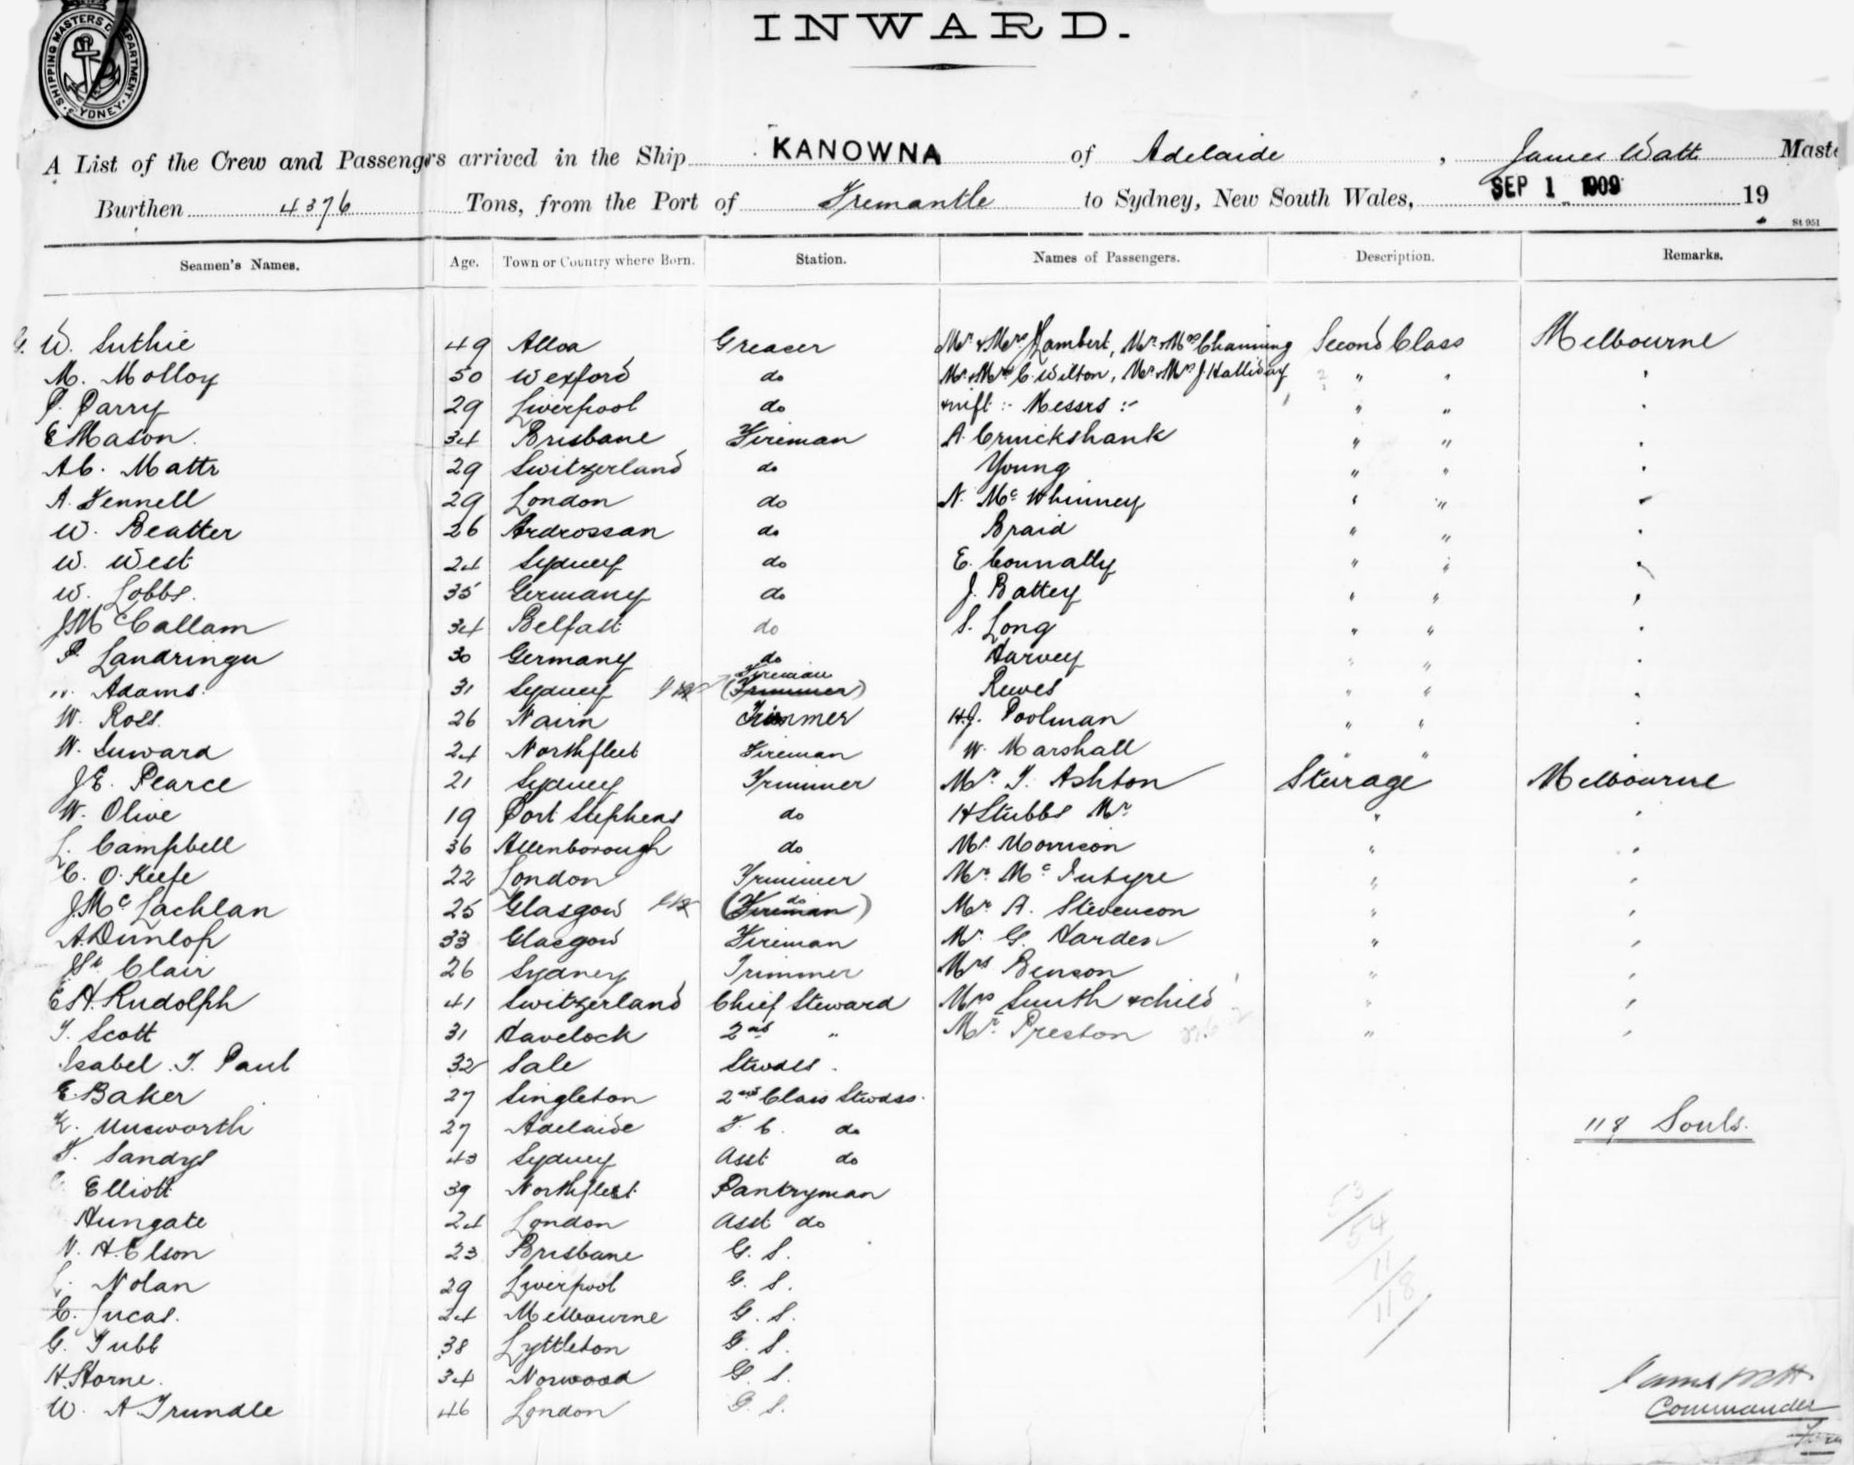 SHIPPING MASTERS DEPARTMENT. SYDNEY
INWARD.
A List of the Crew and Passengers arrived in the Ship KANOWNA of Adelaide, James Watt Maste
Burthen 4376 Tons, from the Port of Fremantle to Sydney, New South Wales, SEP 1 1909 19
St 951
Seamen's Names. Age. Town or Country where Born. Station. Names of Passengers. Description. Remarks.
G. W. Suthie 49 Alloa Greaser Mr & Mrs Lambert, Mr & Mrs Channing Second Class Melbourne
M. Molloy 50 Wexford do Mr & Mrs C. Wilton, Mr & Mrs J Halliday " "
P. Parry 29 Liverpool do Messrs :- " "
E Mason. 34 Brisbane Fireman A. Cruickshank " "
AC. Mattr 29 Switzerland do Young " "
A. Fennell 29 London do N. McWhinney " "
W. Beatter 26 Ardrossan do Braid " "
W. West 24 Sydney do E. Connally " "
W. Lobbs. 35 Germany do J. Battey " "
J McCallam 34 Belfast do S. Long " "
P. Landringu 30 Germany do Harvey " "
Adams. 31 Sydney Fireman (Trimmer) Reeves " "
W. Ross. 26 Nairn Trimmer H.J. Poolman " "
W. Seward 24 Northfleet Fireman W. Marshall " "
J.E. Pearce 21 Sydney Trimmer Mr T. Ashton Steerage Melbourne
W. Olive 19 Port Stephens do H Stubbs Mr "
L. Campbell 36 Allenborough do Mr Morrison "
C. O. Keefe 22 London Trimmer Mr McIntyre "
J Mc Lachlan 25 Glasgow do (Fireman) Mr A. Stevenson "
A. Dunlop 33 Glasgow Fireman Mr G. Harden "
J St Clair 26 Sydney Trimmer Mrs Benson "
E H. Rudolph 41 Switzerland Chief Steward Mrs Smith & child "
T. Scott 31 Havelock 2nd " Mr Preston "
Isabel. T. Paul 32 Sale Stwdss.
E. Baker 27 Singleton 2nd Class Stwdss.
K. Unsworth 27 Adelaide F. C. do
118 Souls.
F. Sandys 43 Sydney Asst do
Elliott 39 Northfleet Pantryman
53
Hungate 24 London Asst do
54
V. H. Elson 23 Brisbane G. S.
11
L. Nolan 29 Liverpool G. S.
118
C. Lucas. 24 Melbourne G. S.
G. Tubb 38 Lyttleton G. S.
H. Horne. 34 Norwood G. S.
James Watt
W. A Trundle 46 London G. S.
Commander